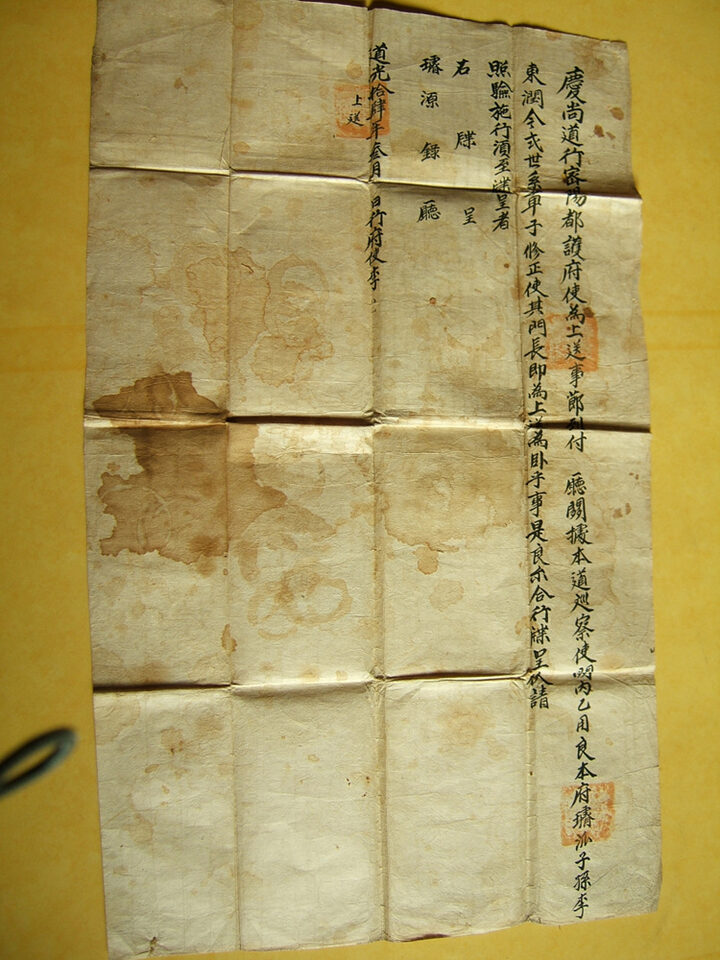 慶尚道行密陽都護府使為上送事節到付 廳關據本道巡察使關內乙用良本府璿派子孫李
東潤令弍世系單子修正使其門長即為上送為卧乎事是良尒合行牒呈伏請
照驗施行須至牒呈者
右牒呈
璿源錄廳
道光拾肆年叁月 日行府使李
上送